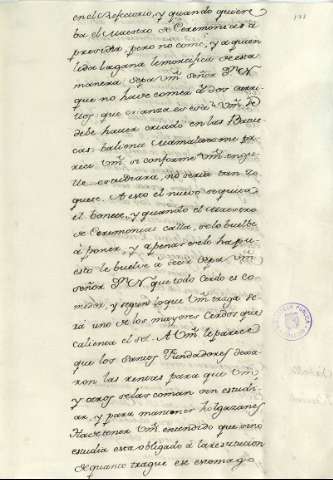 en el Refectorio, y quando quiere
ba el Maestro de Ceremonias à
provida, pero no come, y a quien
le da la gana le mortifica de esta
manera: Sepa Vm señor D.N
que no have comer à dos
que crianza es esta? Vm se
debe haver criado en las
cas
rece Vm si conforme Vm engu
lle estudiara, no seria tan to
quese. A esto el nuevo se quita
el bonete, y quando el Maestro
de Ceremonias calla, se lo buelbe
à poner, y apenas se lo ha pu
esto le buelve à decir sepa Vm
señor D.N que todo cerdo es co
medor, y segun lo que Vm traga se
rà uno de los mayores cerdos que
calienta el sol. A Vm le parece
que los Santos Fundadores dexa
ron las rentas para que Vm
y otros se las coman sin estudi
ar, y para mantener holgazanes
Vm entendido que sino
estudia esta obligado à la restitucion
de quanto trague ese estomago.